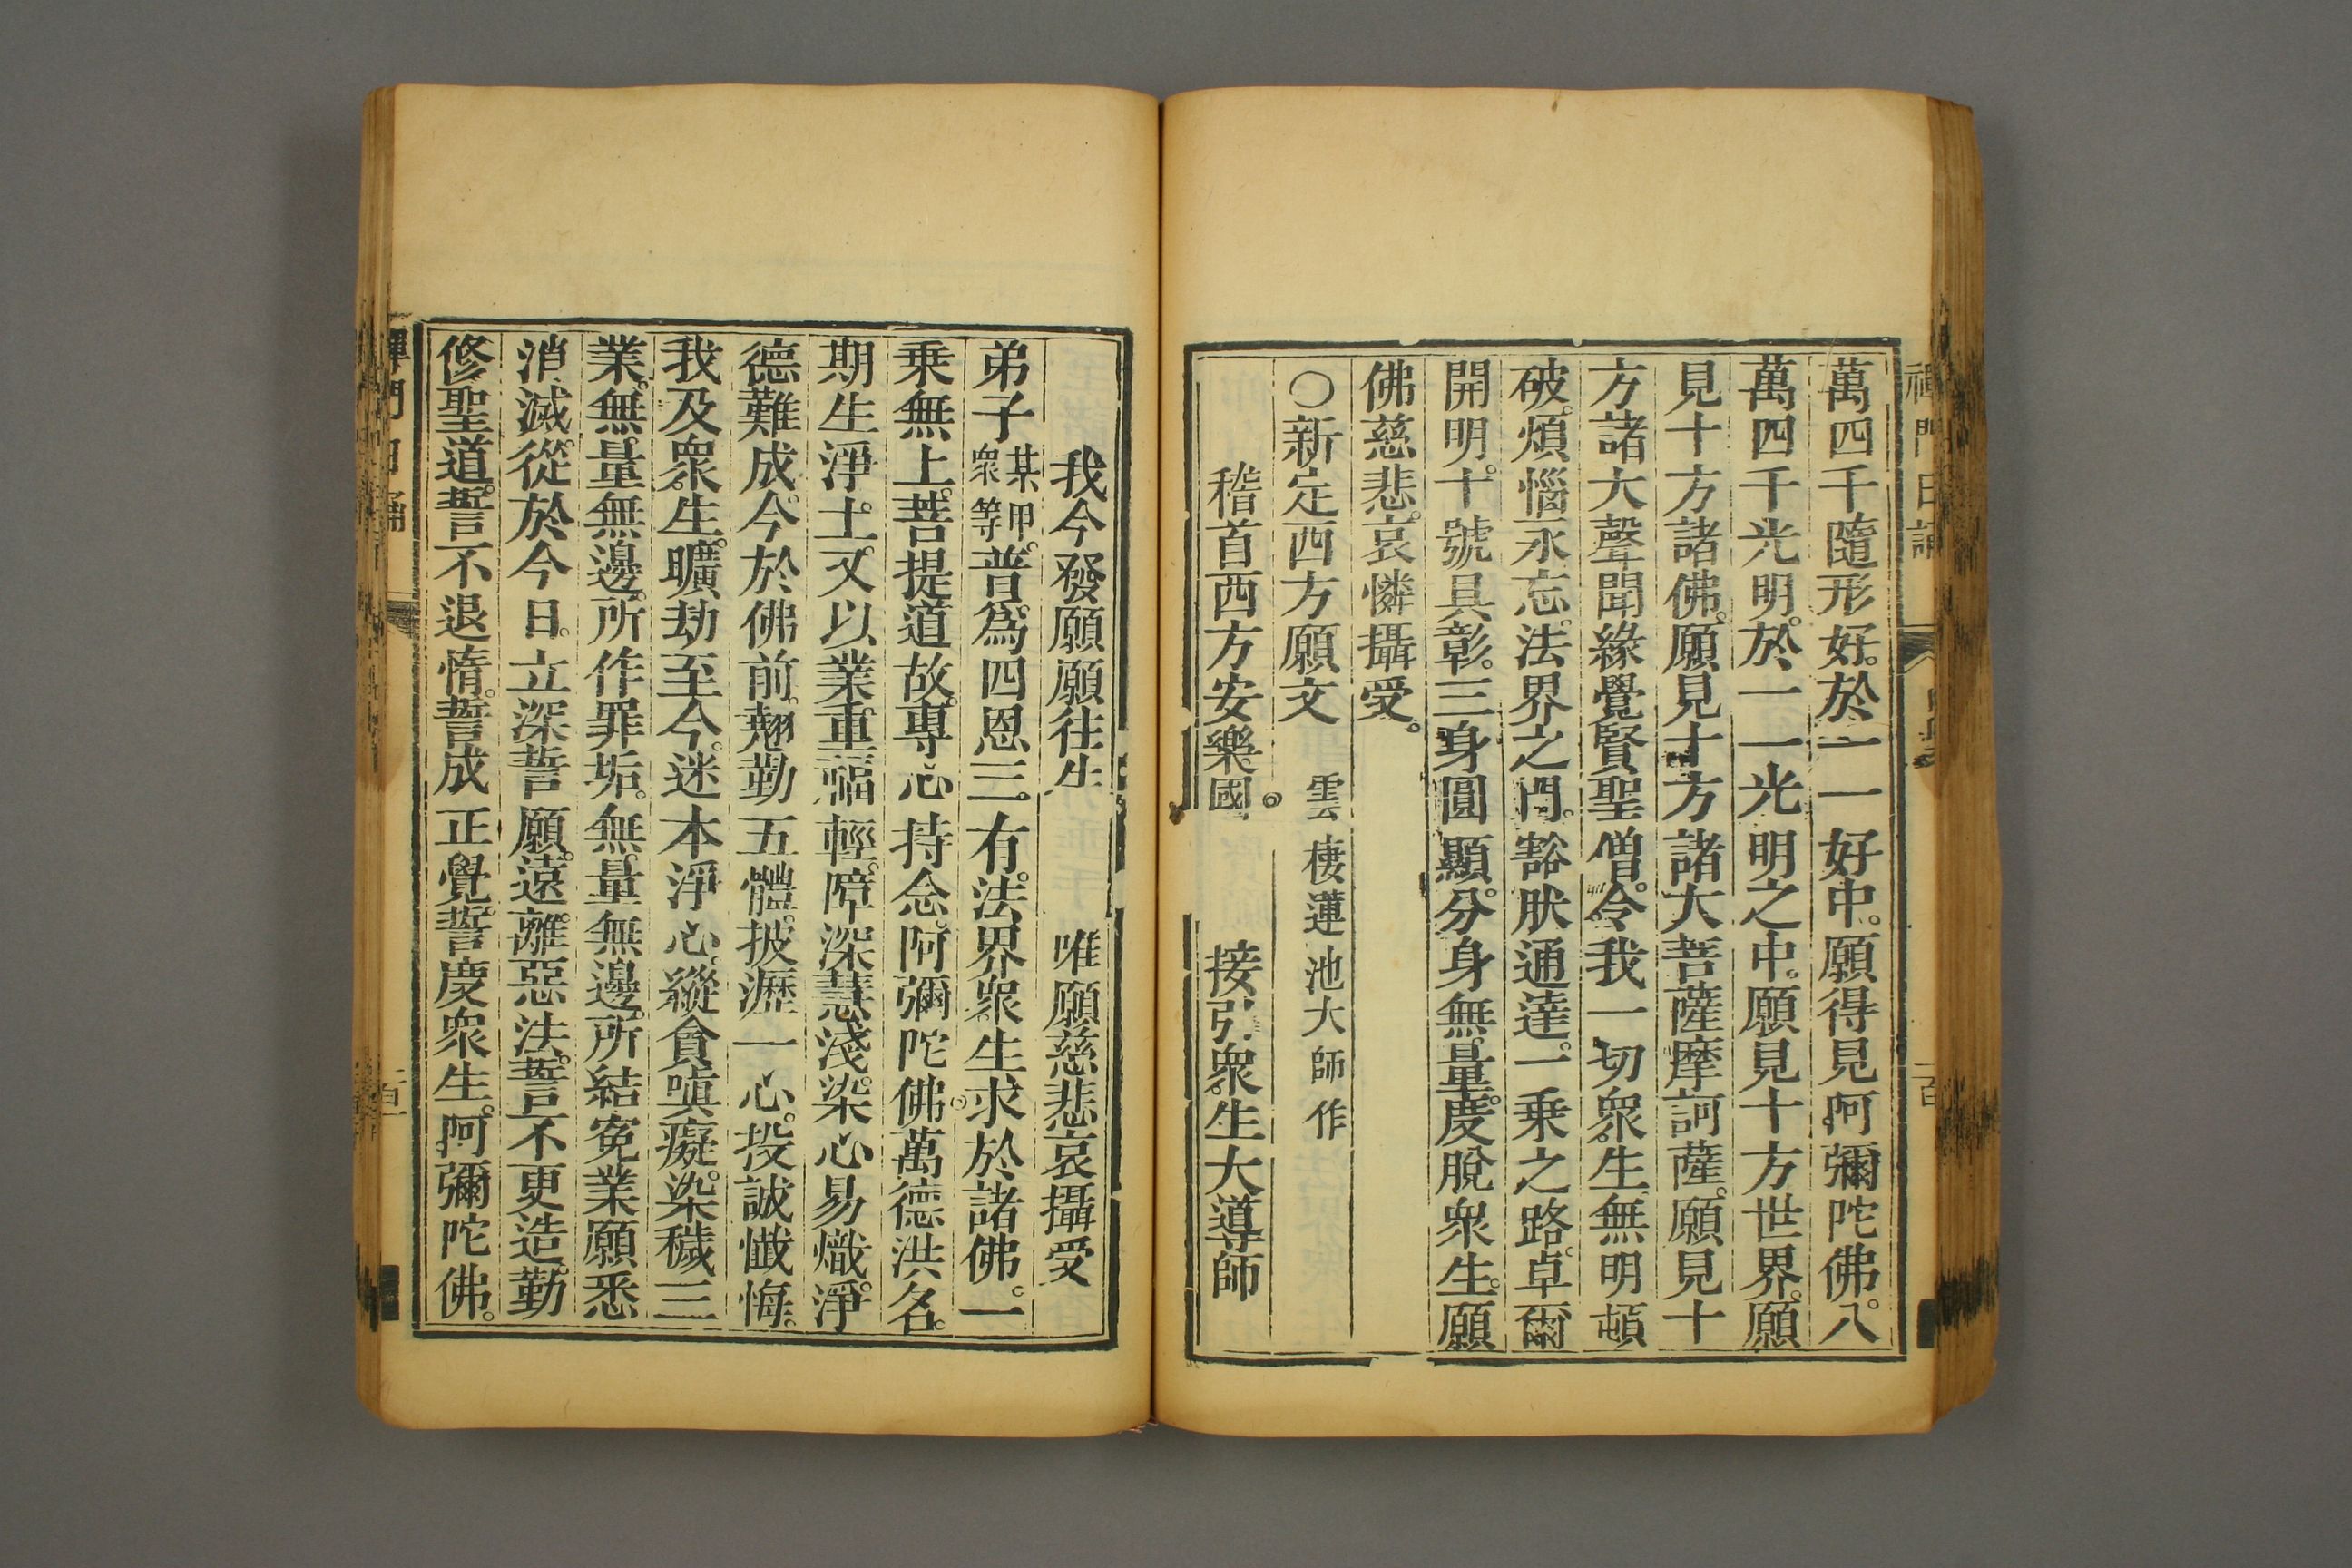 萬四千隨形好。於一一好中。願得見阿彌陀佛。八
萬四千光明。於一一光明之中。願見十方世界。願
見十方諸佛。願見十方諸大菩薩摩訶薩。願見十
方諸大聲聞緣覺賢聖僧。令我一切衆生無明頓
破。煩惱永忘。法界之門。豁肰通達。一乗之路。卓爾
開明。十號具彰。三身圓顯。分身無量。度脫衆生。願
佛慈悲。哀憐攝受。
○新定西方願文 雲棲蓮池大師作
稽首西方安樂國。 接引衆生大導師
我今發願願往生 唯願慈悲哀攝受
弟子某甲衆等。普爲四恩三有。法界衆生。求於諸佛。一
乗無上。菩提道故。專心持念。阿彌陀佛。萬德洪名。
期生淨土。又以業重福輕。障深慧淺。染心易熾。淨
德難成。今於佛前。翹勤五體。披瀝一心。投誠懺悔。
我及衆生。曠劫至今。迷本淨心。縱貪嗔癡。染穢三
業。無量無邊。所作罪垢。無量無邊。所結寃業。願悉
消滅。從於今日。立深誓願。遠離惡法。誓不更造。勤
修聖道。誓不退惰。誓成正覺。誓度衆生。阿彌陀佛。
禪門日誦